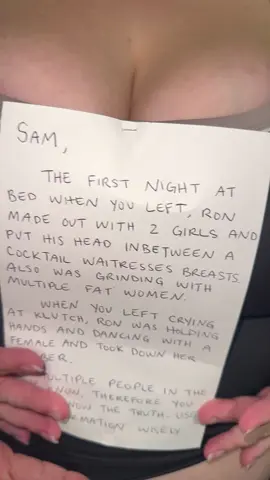 SAM,
THE FIRST NIGHT AT
BED WHEN YOU LEFT, RON
MADE OUT WITH 2 GIRLS AND
PUT HIS HEAD INBETWEEN A
COCKTAIL WAITRESSES BREASTS.
ALSO WAS GRINDING WITH
MULTIPLE FAT WOMEN.
WHEN YOU LEFT CRYING
AT KLUTCH, RON WAS HOLDING
HANDS AND DANCING WITH A
FEMALE AND TOOK DOWN HER
BER.
MULTIPLE PEOPLE IN THE
KNOW, THEREFORE YOU
KNOW THE TRUTH.
WISELY